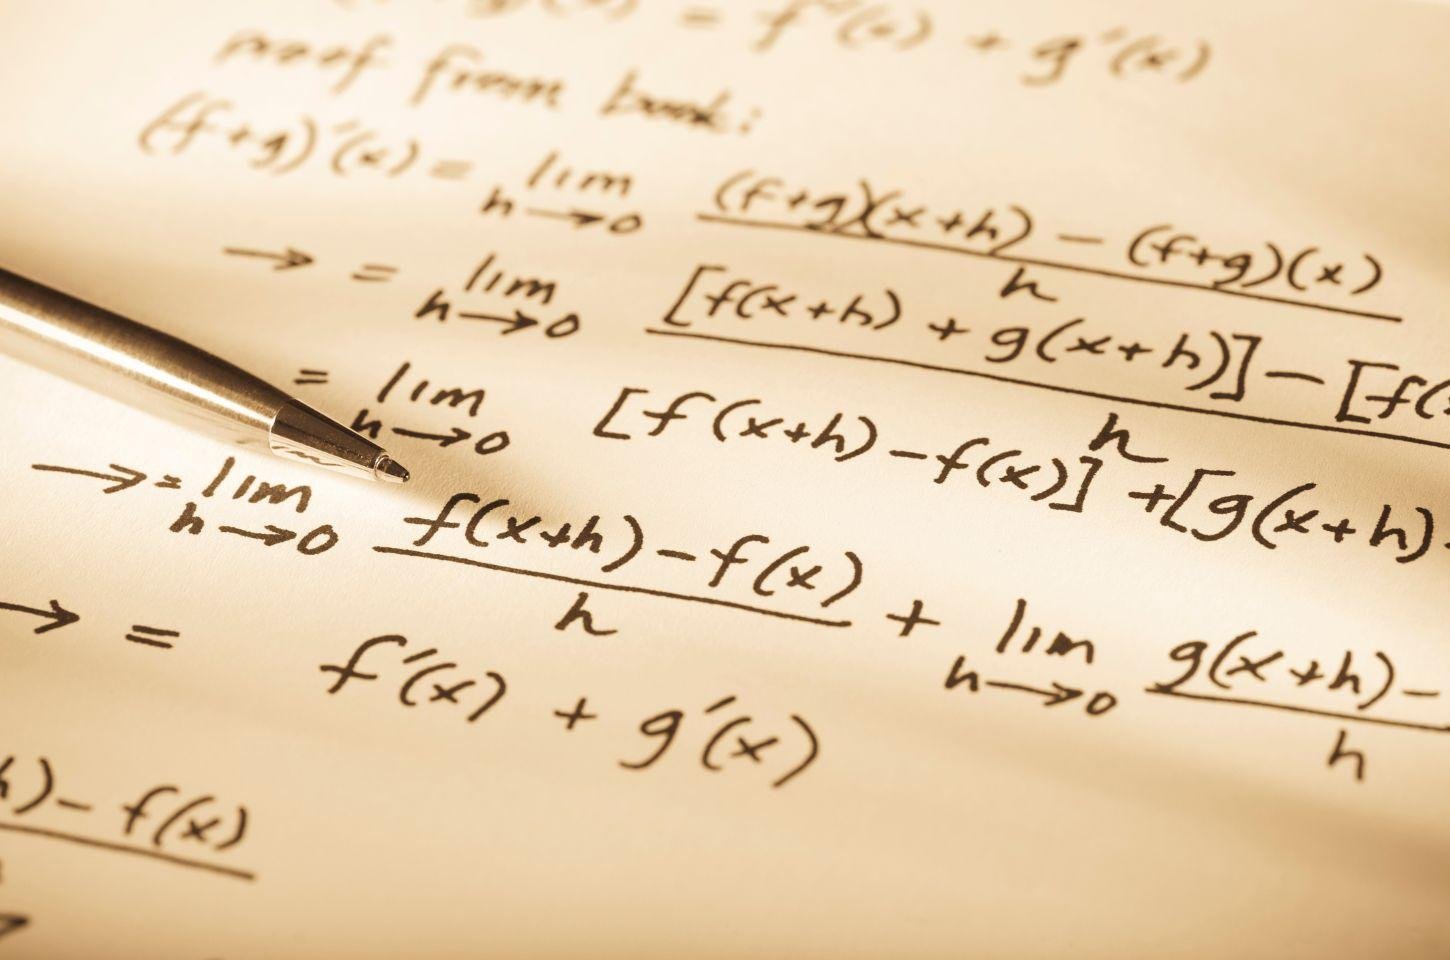 = f'(x) + g'(x)
proof from book:
(f+g)'(x) = lim h→0 (f+g)(x+h) − (f+g)(x) / h
→ = lim h→0 [f(x+h) + g(x+h)] − [f( / h
= lim h→0 [f(x+h) − f(x)] + [g(x+h)
→ = lim h→0 f(x+h) − f(x) / h + lim h→0 g(x+h) − / h
→ = f'(x) + g'(x)
h) − f(x)